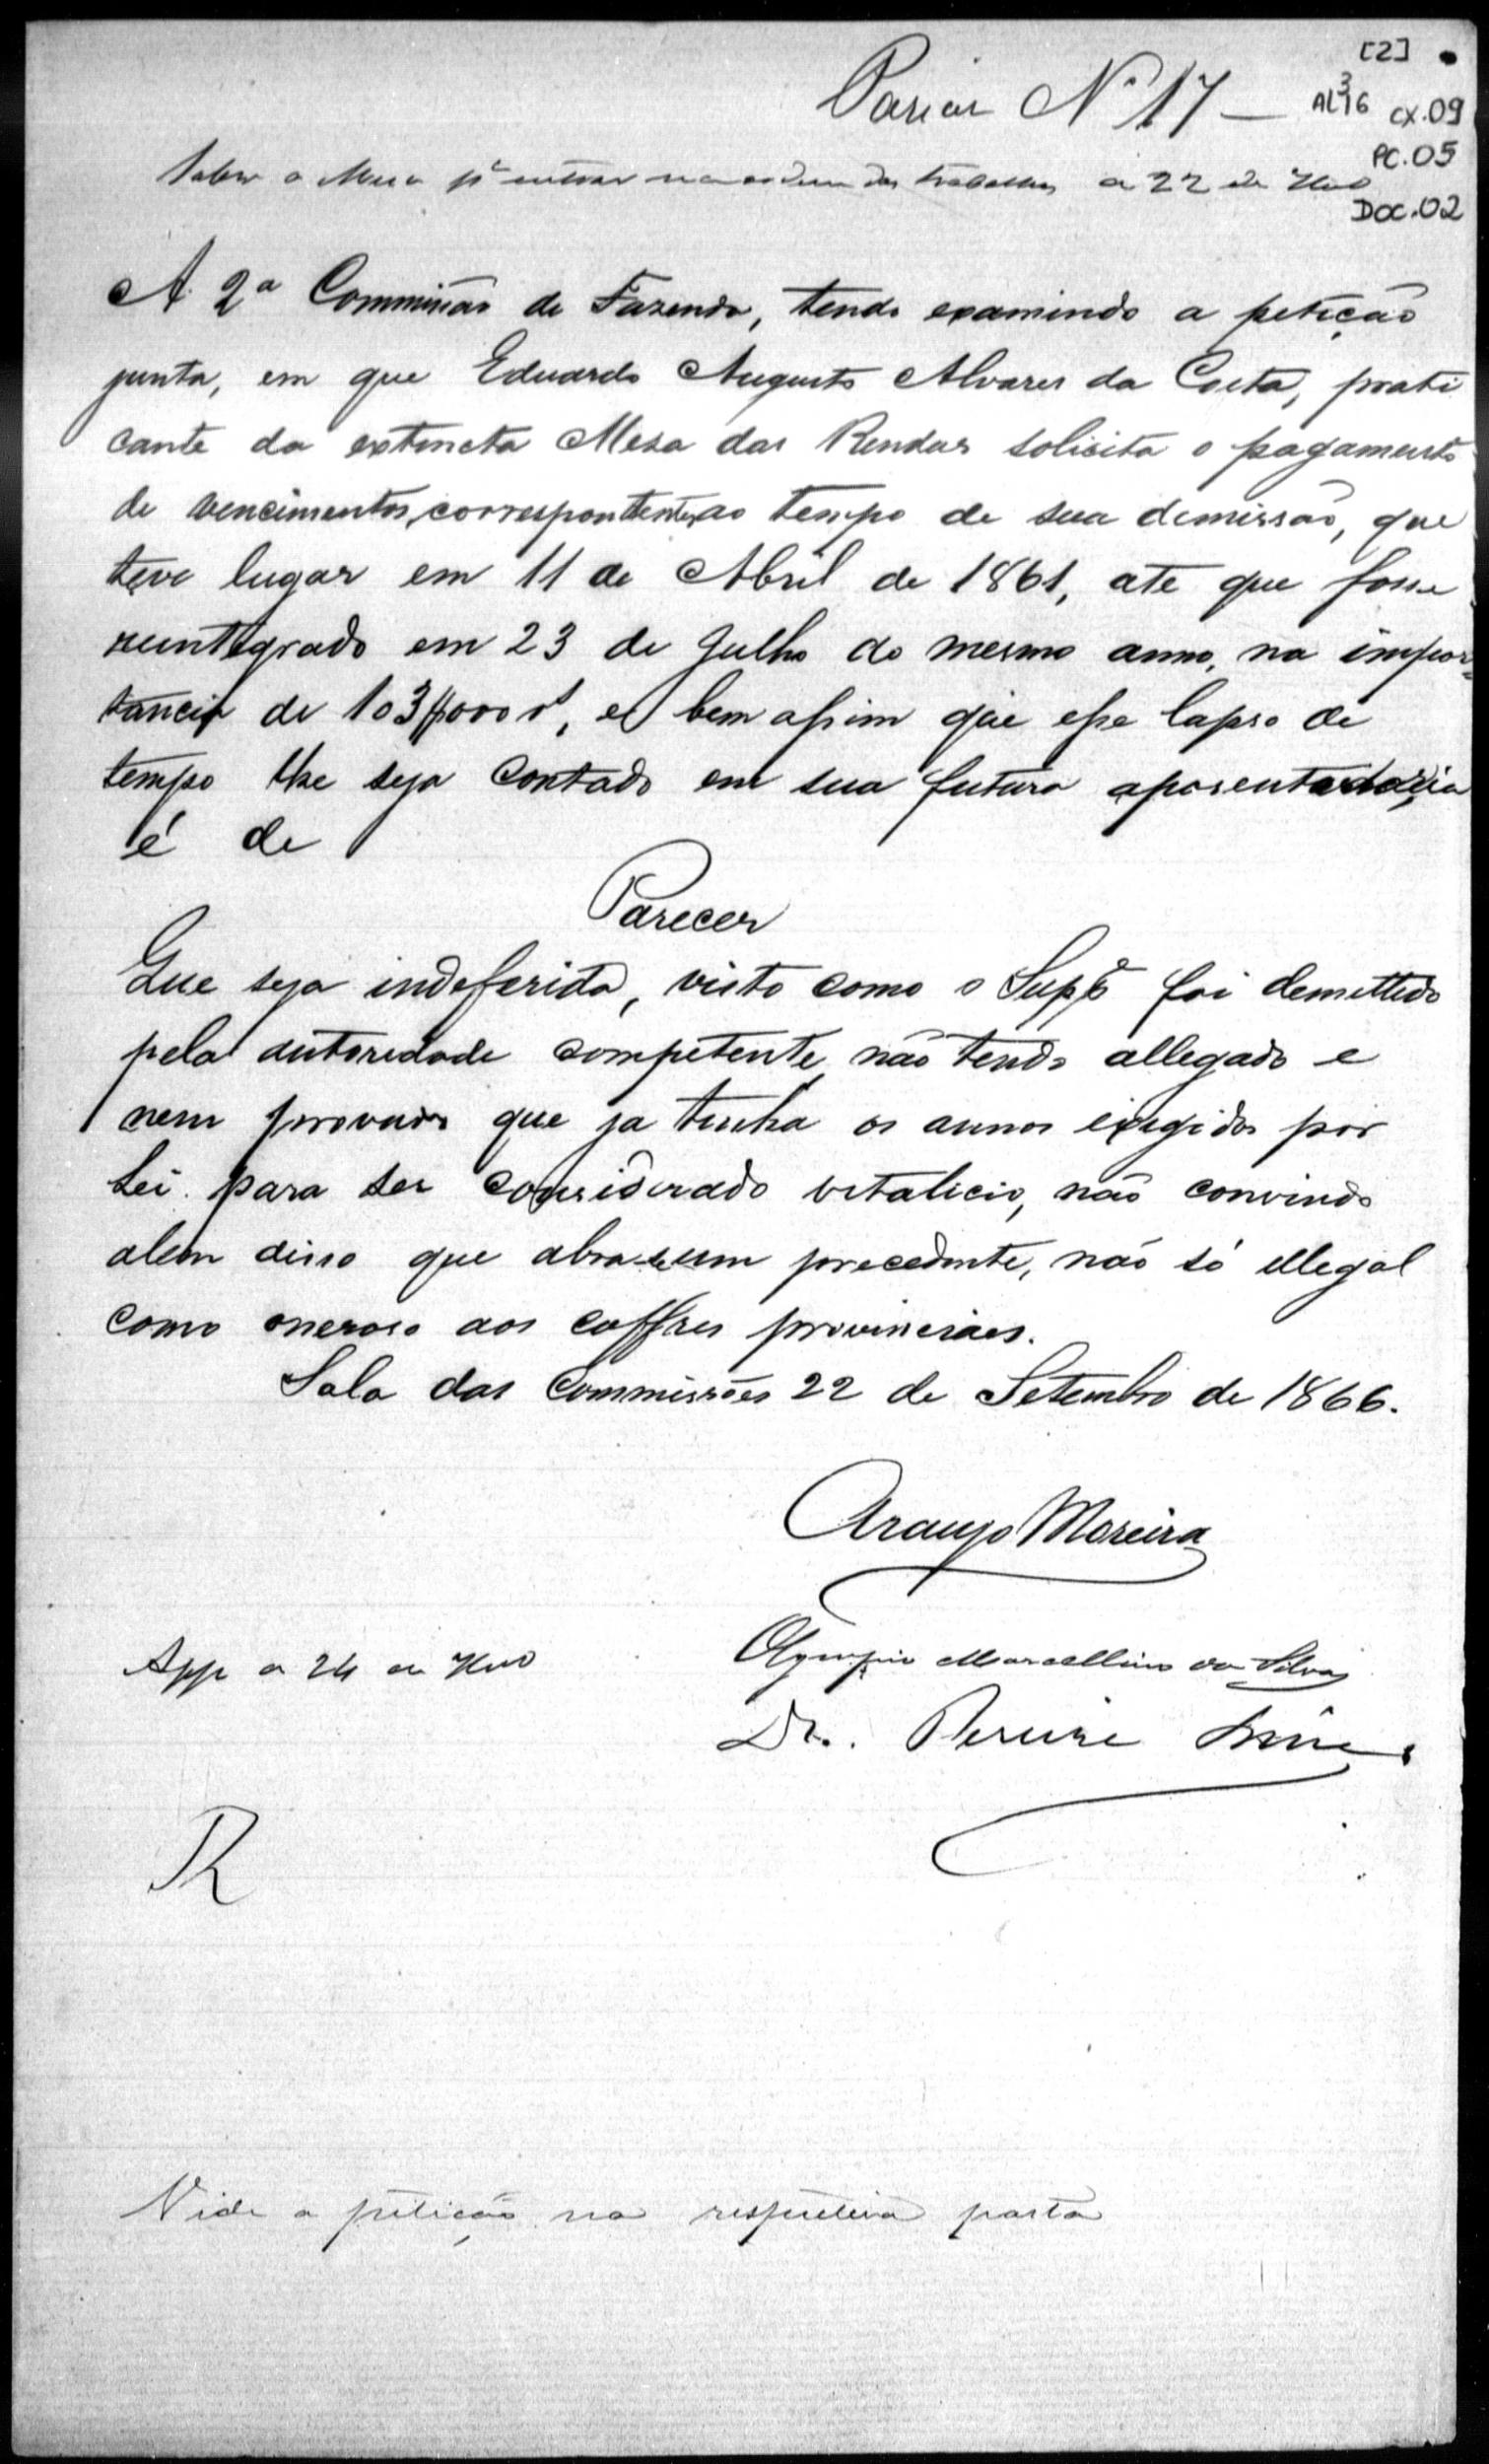 [2]
Parecer Nº 17 —
AL 3 16 CX.09
PC.05
Sobre a Mesa pª entrar na ordem dos trabalhos a 22 de 7bro
DOC.02
A 2ª Commissão de Fazenda, tendo examindo a petição
junta, em que Eduardo Augusto Alvares da Costa, prati
cante da extincta Mesa das Rendas solicita o pagamento
de vencimentos, correspontentes, ao tempo de sua demissão, que
teve lugar em 11 de Abril de 1861, ate que fosse
reintegrado em 23 de Julho do mesmo anno, na impor=
tancia de 103$000 rs, e bem assim que esse lapso de
tempo lhe seja contado em sua futura aposentadoria
é de
Parecer
Que seja indeferida, visto como o Suppº foi demettido
pela autoridade competente, não tendo allegado e
nem provado que ja tenha os annos exigidos por
Lei para ser considerado vitalicio, não convindo
alem disso que abra-se um precedente, não só illegal
como oneroso aos coffres provinciaes.
Sala das Commissões 22 de Setembro de 1866.
Araujo Moreira
Olympio Marcellino da Silva
App a 24 de 7bro
Dr. Pereira
R
Vide a petição na respectiva pasta